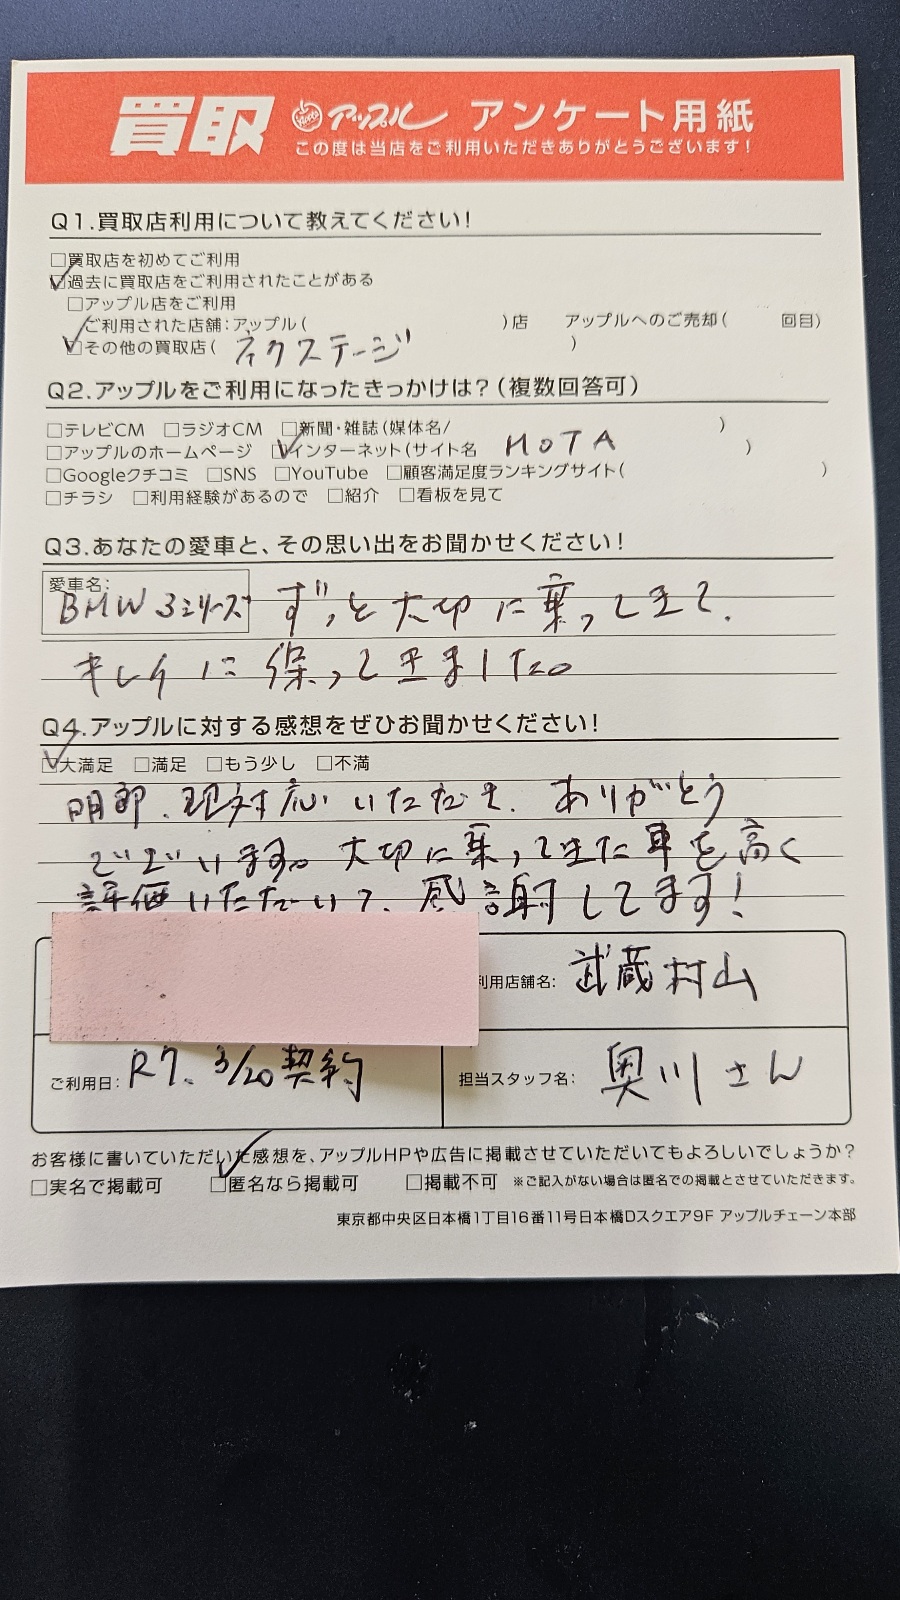 買取 アップル アンケート用紙
この度は当店をご利用いただきありがとうございます!
Q1.買取店利用について教えてください!
□買取店を初めてご利用
☑過去に買取店をご利用されたことがある
□アップル店をご利用
ご利用された店舗:アップル( )店 アップルへのご売却( 回目)
☑その他の買取店( ネクステージ )
Q2.アップルをご利用になったきっかけは?(複数回答可)
□テレビCM □ラジオCM □新聞・雑誌(媒体名/ )
□アップルのホームページ ☑インターネット(サイト名 MOTA )
□Googleクチコミ □SNS □YouTube □顧客満足度ランキングサイト( )
□チラシ □利用経験があるので □紹介 □看板を見て
Q3.あなたの愛車と、その思い出をお聞かせください!
愛車名:
BMW 3シリーズ ずっと大切に乗ってきて、
キレイに保ってきました。
Q4.アップルに対する感想をぜひお聞かせください!
☑大満足 □満足 □もう少し □不満
明郎、即対応いただき、ありがとう
ございます。大切に乗ってきた車を高く
評価いただいて、感謝してます!
利用店舗名: 武蔵村山
ご利用日: R7. 3/20 契約
担当スタッフ名: 奥川さん
お客様に書いていただいた感想を、アップルHPや広告に掲載させていただいてもよろしいでしょうか?
□実名で掲載可 ☑匿名なら掲載可 □掲載不可 ※ご記入がない場合は匿名での掲載とさせていただきます。
東京都中央区日本橋1丁目16番11号日本橋Dスクエア9F アップルチェーン本部